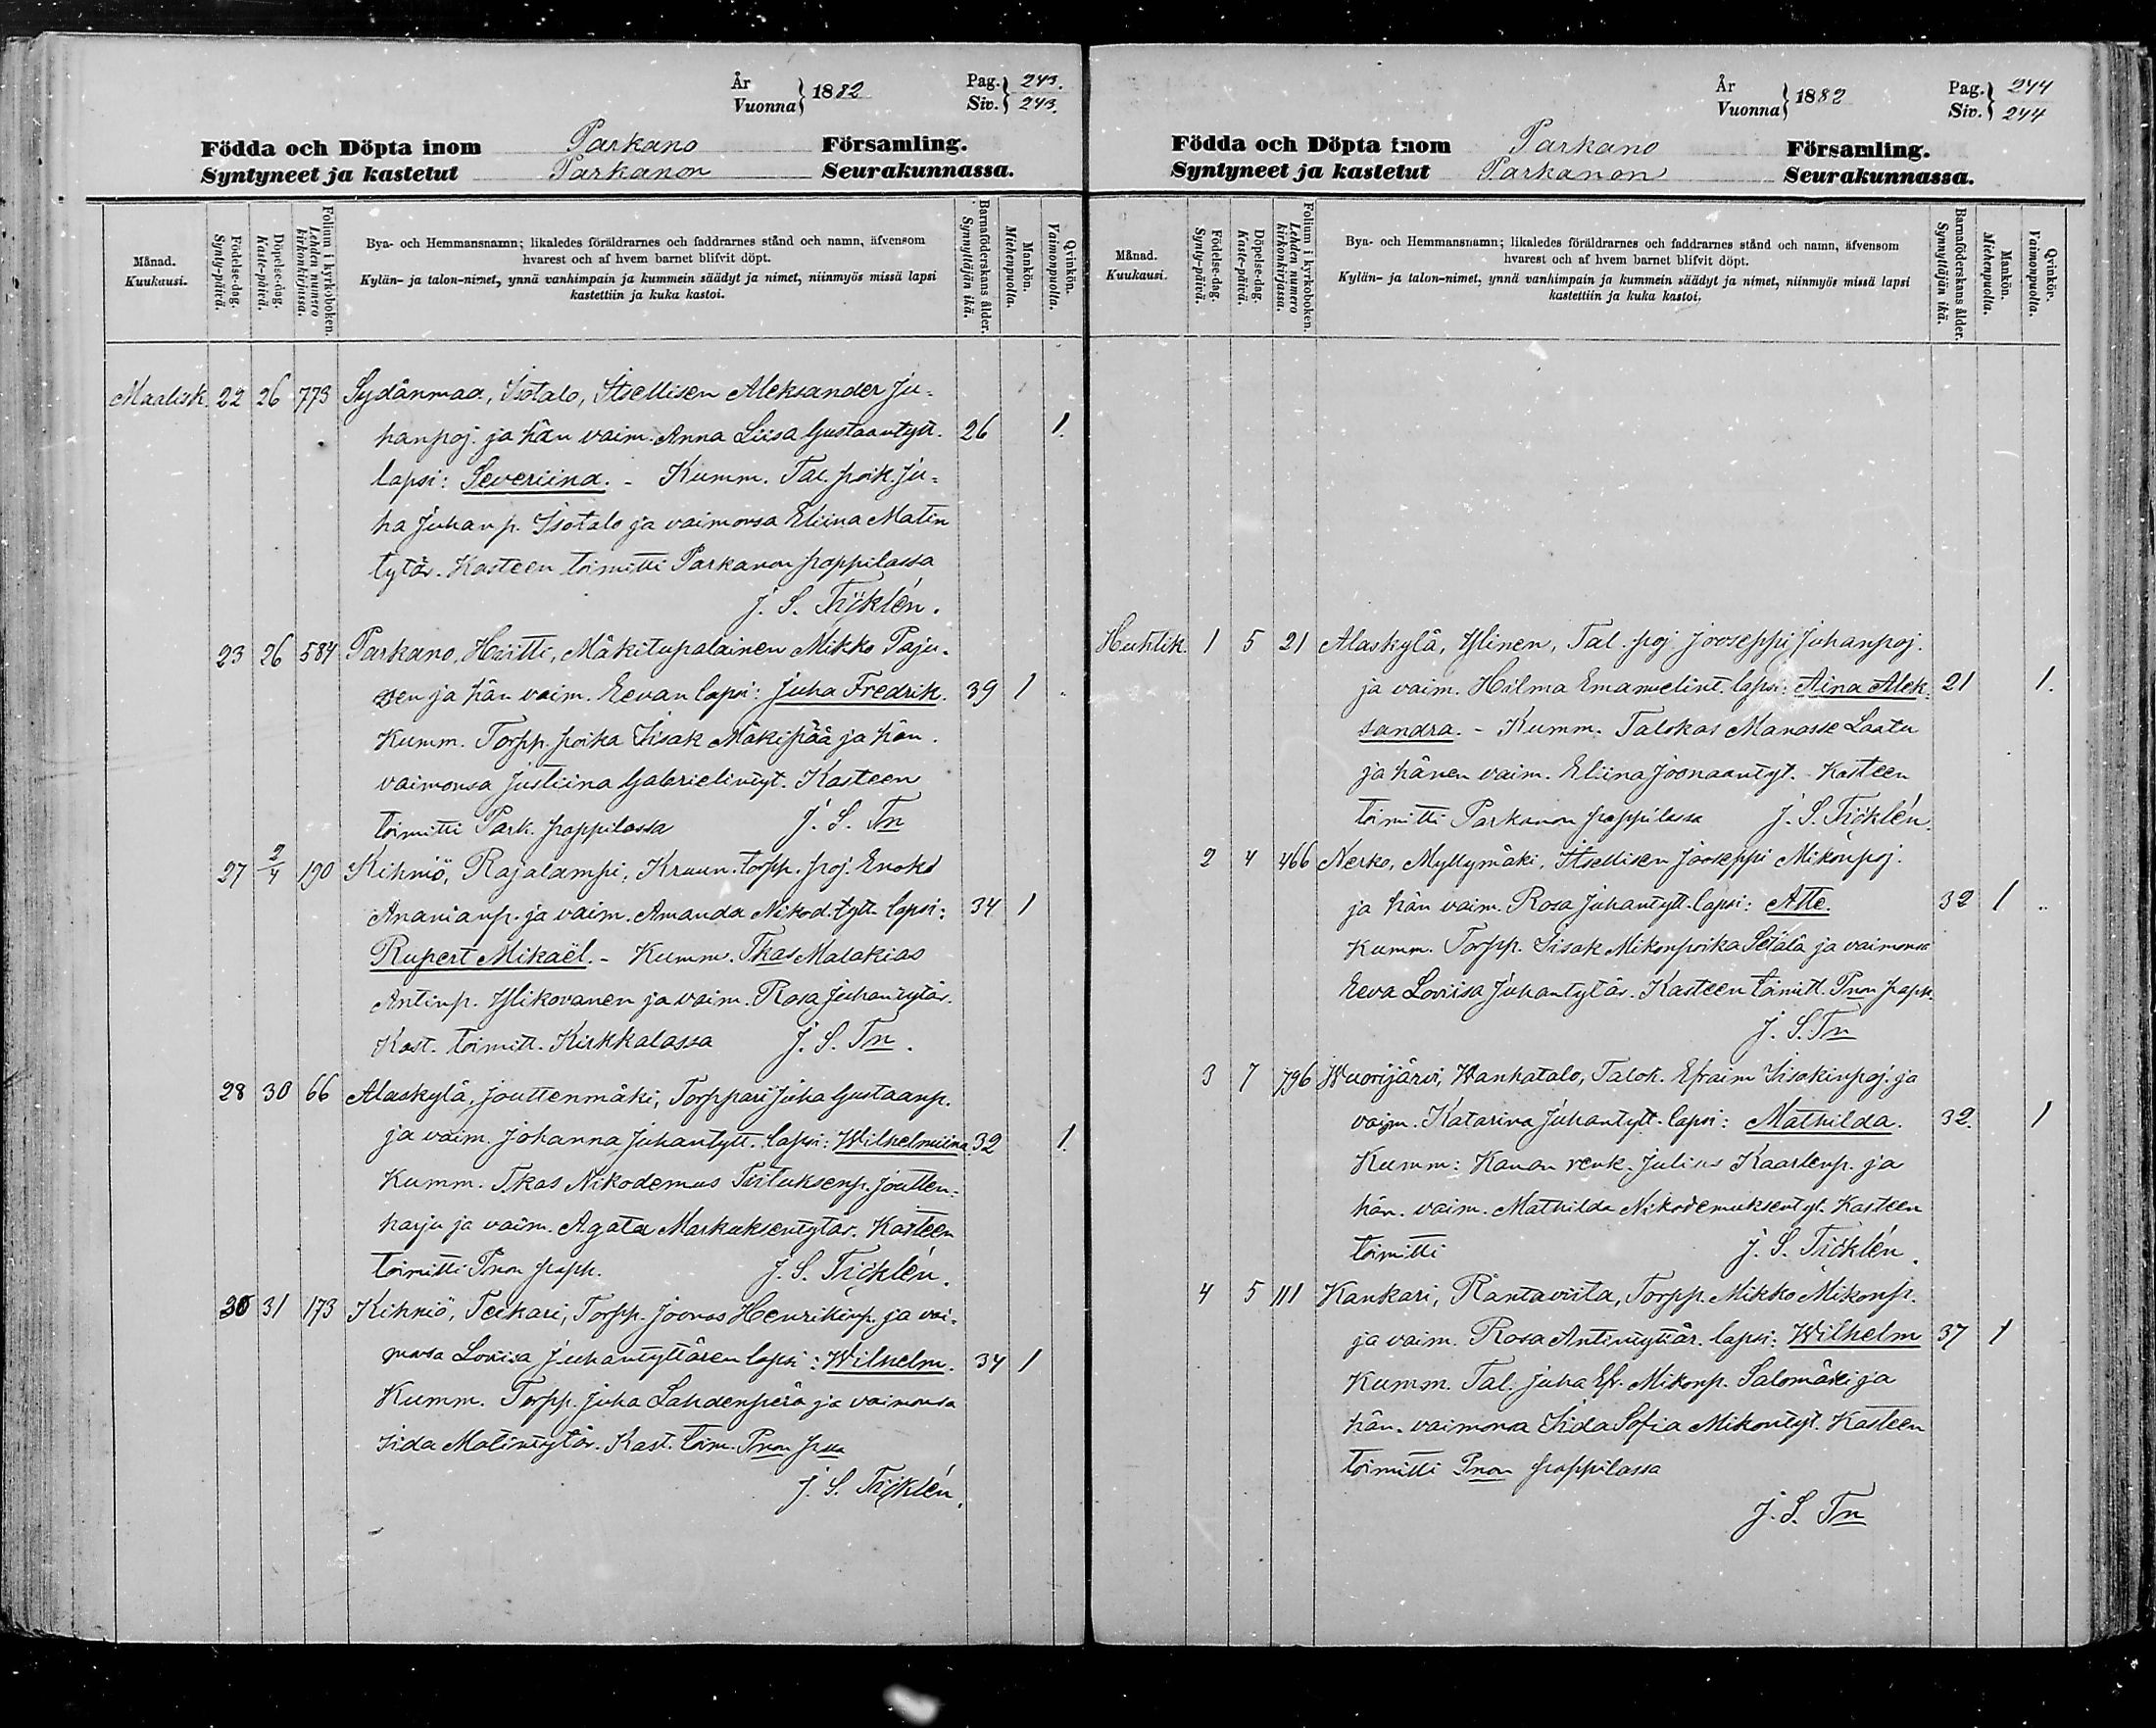 År
Vuonna } 1882
Pag. 243.
Siv. 243.
Födda och Döpta inom Parkano Församling.
Syntyneet ja kastetut Parkanon Seurakunnassa.
Månad.
Kuukausi.
Födelse-dag.
Synty-päivä.
Döpelse-dag.
Kaste-päivä.
Folium i kyrkoboken.
Lehden numero
kirkonkirjassa.
Bya- och Hemmansnamn; likaledes föräldrarnes och faddrarnes stånd och namn, äfvensom
hvarest och af hvem barnet blifvit döpt.
Kylän- ja talon-nimet, ynnä vanhimpain ja kummein säädyt ja nimet, niinmyös missä lapsi
kastettiin ja kuka kastoi.
Barnaföderskans ålder.
Synnyttäjän ikä.
Mankön.
Miehenpuolta.
Qvinkön.
Vaimonpuolta.
Maalisk. 22 26 773 Sydänmaa, Isotalo, Itsellisen Aleksander Ju-
hanpoj. ja hän vaim. Anna Liisa Gustaantytt. 26 1.
lapsi: Severiina. - Kumm. Tal. poik. Ju-
ha Juhanp. Isotalo ja vaimonsa Eliina Matin
tytär. Kasteen toimitti Parkanon pappilassa
J. S. Ticklén.
23 26 584 Parkano, Hiitti, Mäkitupalainen Mikko Paju-
sen ja hän vaim. Eevan lapsi: Juha Fredrik. 39 1
Kumm. Torpp. poika Iisak Mäkipää ja hän.
vaimonsa Justiina Gabrielintyt. Kasteen
toimitti Park. pappilassa J. S. Tn
27 2/4 190 Kihniö, Rajalampi, Kruun. torpp. poj. Enoks
Ananianp. ja vaim. Amanda Nikod. tytt. lapsi: 34 1
Rupert Mikaël. - Kumm. Tkas Malakias
Antinp. Ylikovanen ja vaim. Rosa Juhantytär.
Kast. toimitt. Kirkkalassa J. S. Tn.
28 30 66 Alaskylä, Jouttenmäki, Torppari Juha Gustaanp.
ja vaim. Johanna Juhantytt. lapsi: Wilhelmiina 32 1.
Kumm. Tkas Nikodemus Tiituksenp. Joutten-
harju ja vaim. Agata Markuksentytär. Kasteen
toimitti Pnon papp. J. S. Ticklén.
30 31 173 Kihniö, Teikari, Torpp. Joonas Henrikinp. ja vai-
monsa Lovisa Juhantyttären lapsi: Wilhelm. 34 1
Kumm. Torpp. Juha Lahdenperä ja vaimonsa
Iida Matintytär. Kast. toim. Pnon
J. S. Ticklén.
År
Vuonna } 1882
Pag. 244
Siv. 244
Födda och Döpta inom Parkano Församling.
Syntyneet ja kastetut Parkanon Seurakunnassa.
Månad.
Kuukausi.
Födelse-dag.
Synty-päivä.
Döpelse-dag.
Kaste-päivä.
Folium i kyrkoboken.
Lehden numero
kirkonkirjassa.
Bya- och Hemmansnamn; likaledes föräldrarnes och faddrarnes stånd och namn, äfvensom
hvarest och af hvem barnet blifvit döpt.
Kylän- ja talon-nimet, ynnä vanhimpain ja kummein säädyt ja nimet, niinmyös missä lapsi
kastettiin ja kuka kastoi.
Barnaföderskans ålder.
Synnyttäjän ikä.
Mankön.
Miehenpuolta.
Qvinkön.
Vaimonpuolta.
Huhtik. 1 5 21 Alaskylä, Ylinen, Tal. poj. Jooseppi Juhanpoj.
ja vaim. Hilma Emanuelint. lapsi: Aina Alek- 21 1.
sandra. - Kumm. Talokas Manasse Laatu
ja hänen vaim. Eliina Joonaantyt. Kasteen
toimitti Parkanon pappilassa J. S. Ticklén.
2 4 466 Nerko, Myllymäki, Itsellisen Jooseppi Mikonpoj.
ja hän vaim. Rosa Juhantytt. lapsi: Atte. 32 1
Kumm. Torpp. Iisak Mikonpoika Setälä ja vaimonsa
Eeva Loviisa Juhantytär. Kasteen toimitt. Pnon papp.
J. S. Tn
3 7 796 Wuorijärvi, Wanhatalo, Talok. Efraim Iisakinpoj. ja
vaim. Katarina Juhantytt. lapsi: Mathilda. 32. 1
Kumm: Kanan renk. Julius Kaarlenp. ja
hän. vaim. Mathilda Nikodemuksentyt. Kasteen
toimitti J. S. Ticklén.
4 5 111 Kankari, Rantaviita, Torpp. Mikko Mikonp.
ja vaim. Rosa Antintyttär. lapsi: Wilhelm 37 1
Kumm. Tal. Juha Efr. Mikonp. Salomäki ja
hän. vaimonsa Iida Sofia Mikontyt. Kasteen
toimitti Pnon pappilassa
J. S. Tn